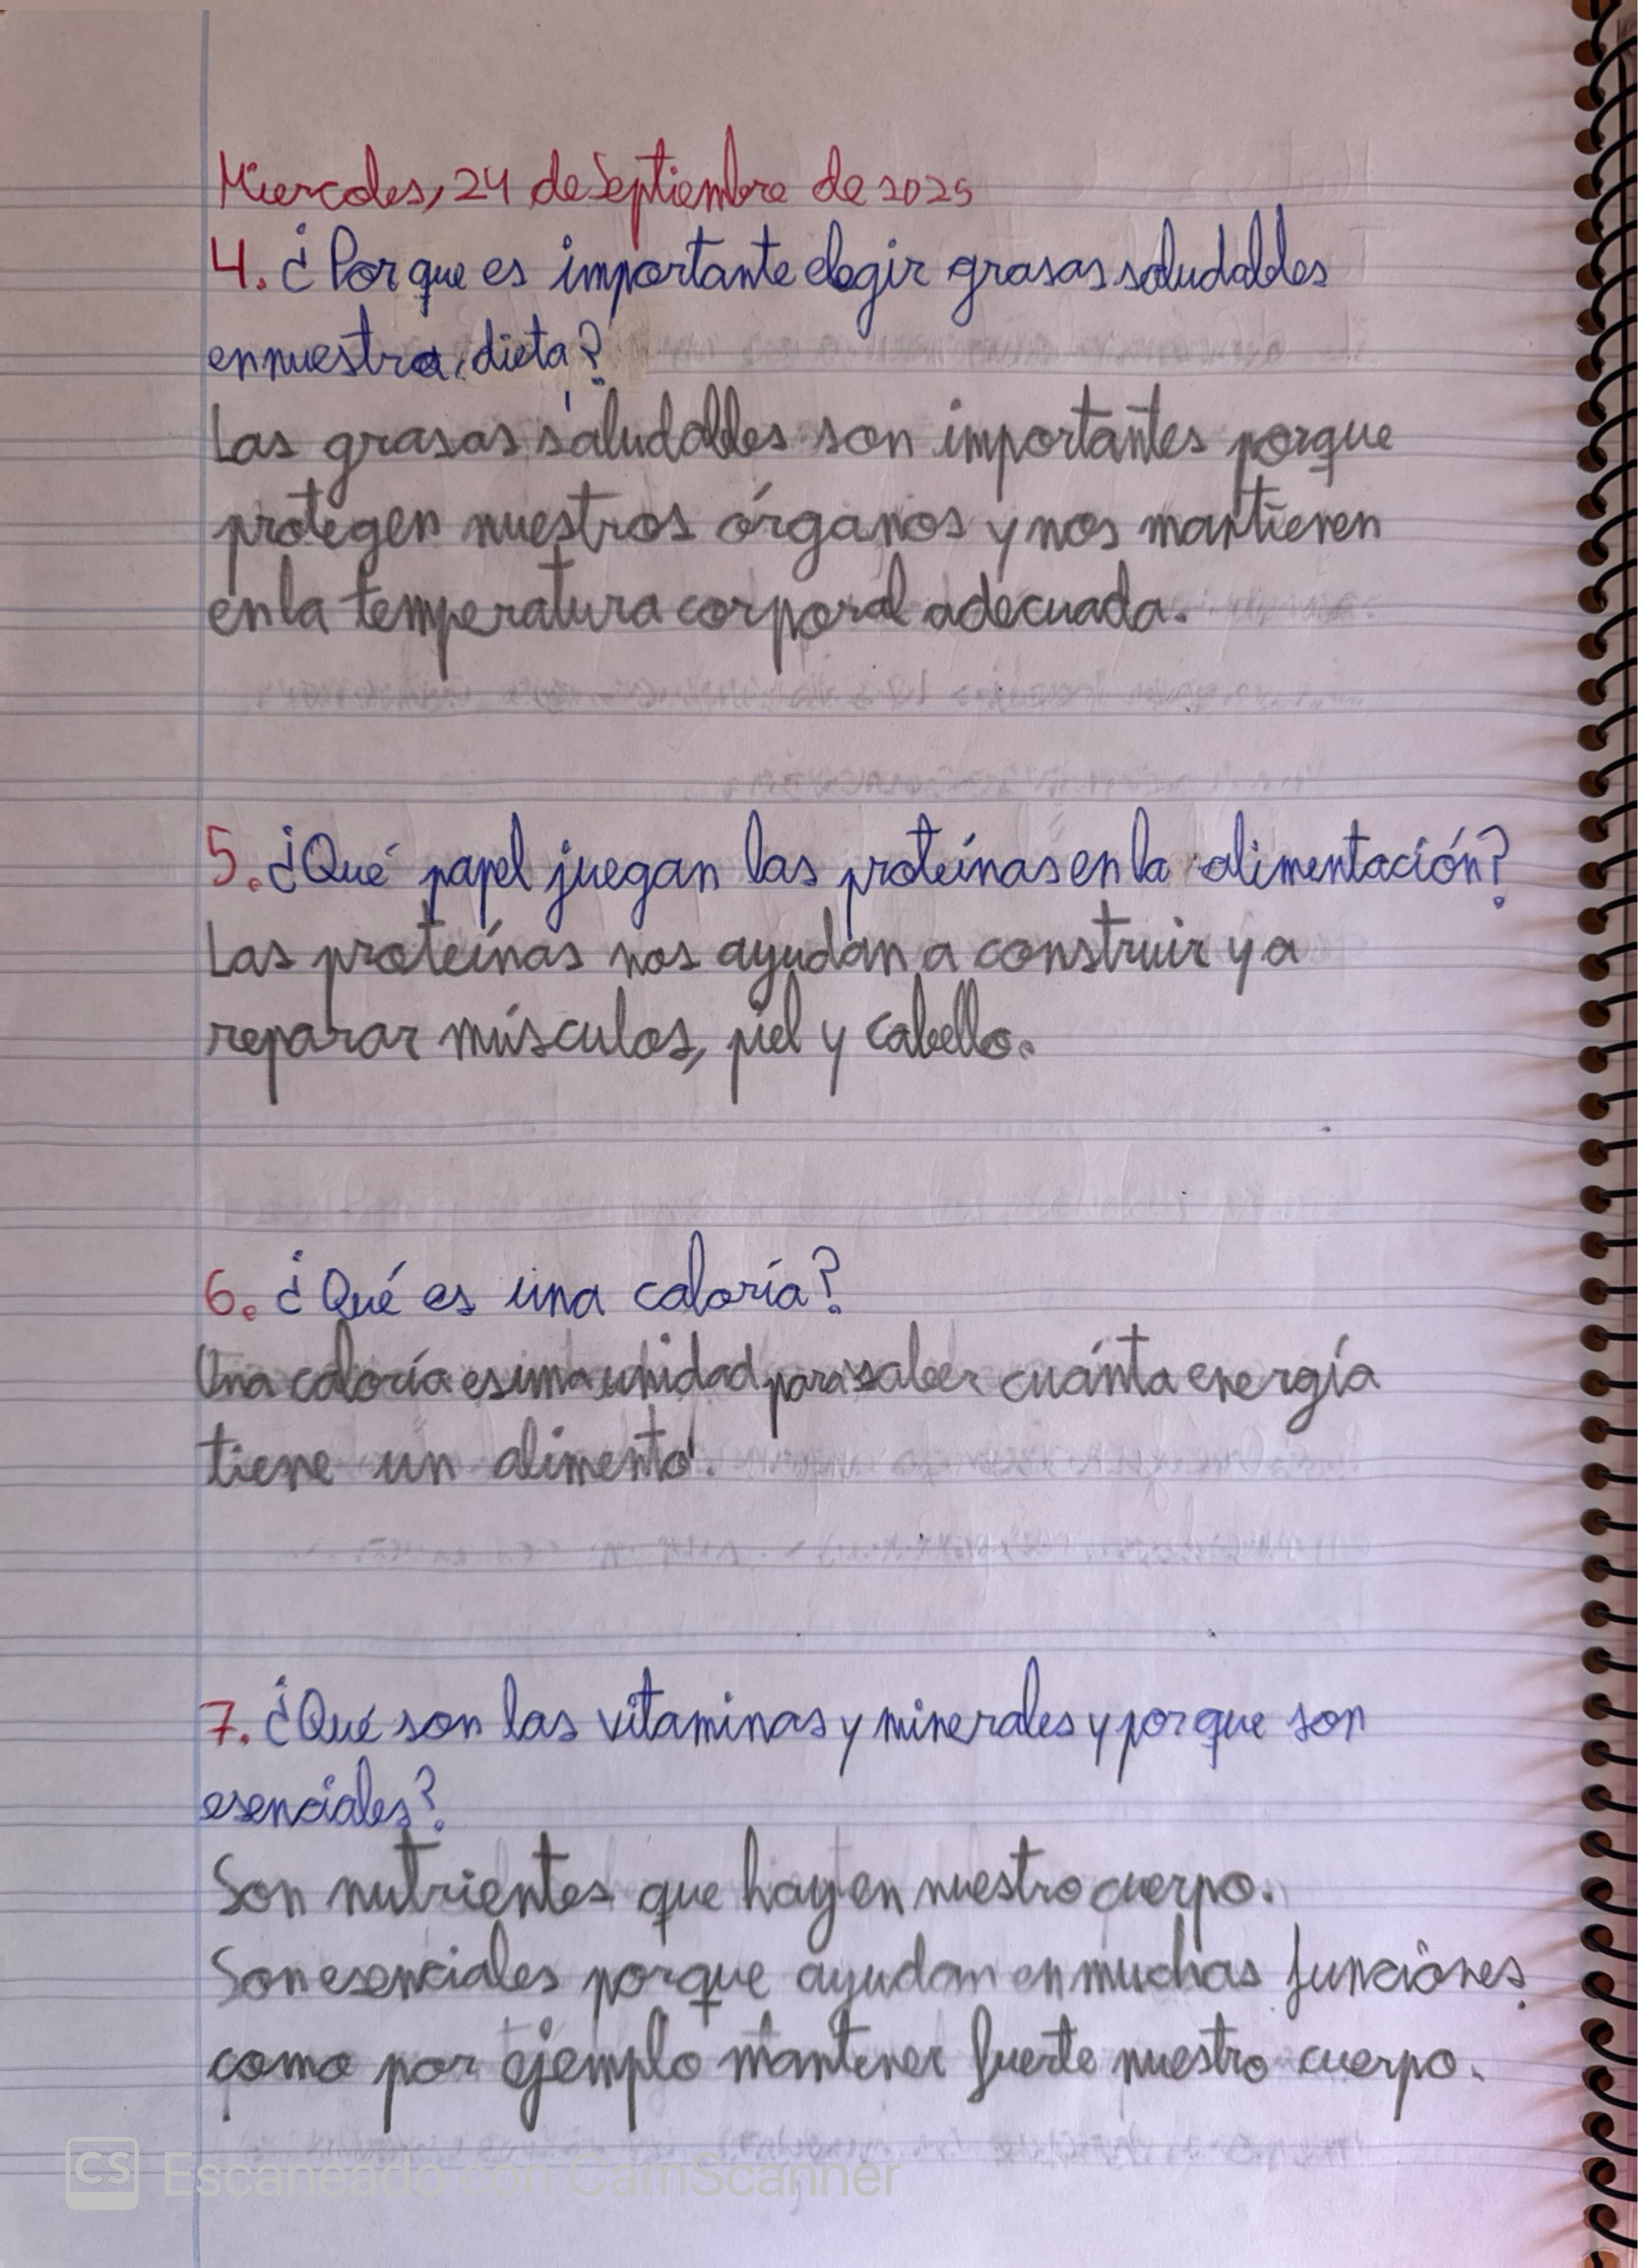 Miercoles, 24 de Septiembre de 2025
4. ¿Por que es importante elegir grasas saludables
en nuestra dieta?
Las grasas saludables son importantes porque
protegen nuestros órganos y nos mantienen
en la temperatura corporal adecuada.
5. ¿Qué papel juegan las proteínas en la alimentación?
Las proteínas nos ayudan a construir y a
reparar músculos, piel y cabello.
6. ¿Qué es una caloría?
Una caloría es una unidad para saber cuánta energía
tiene un alimento.
7. ¿Qué son las vitaminas y minerales y porque son
esenciales?
Son nutrientes que hay en nuestro cuerpo.
Son esenciales porque ayudan en muchas funciones,
como por ejemplo mantener fuerte nuestro cuerpo.
CS Escaneado con CamScanner